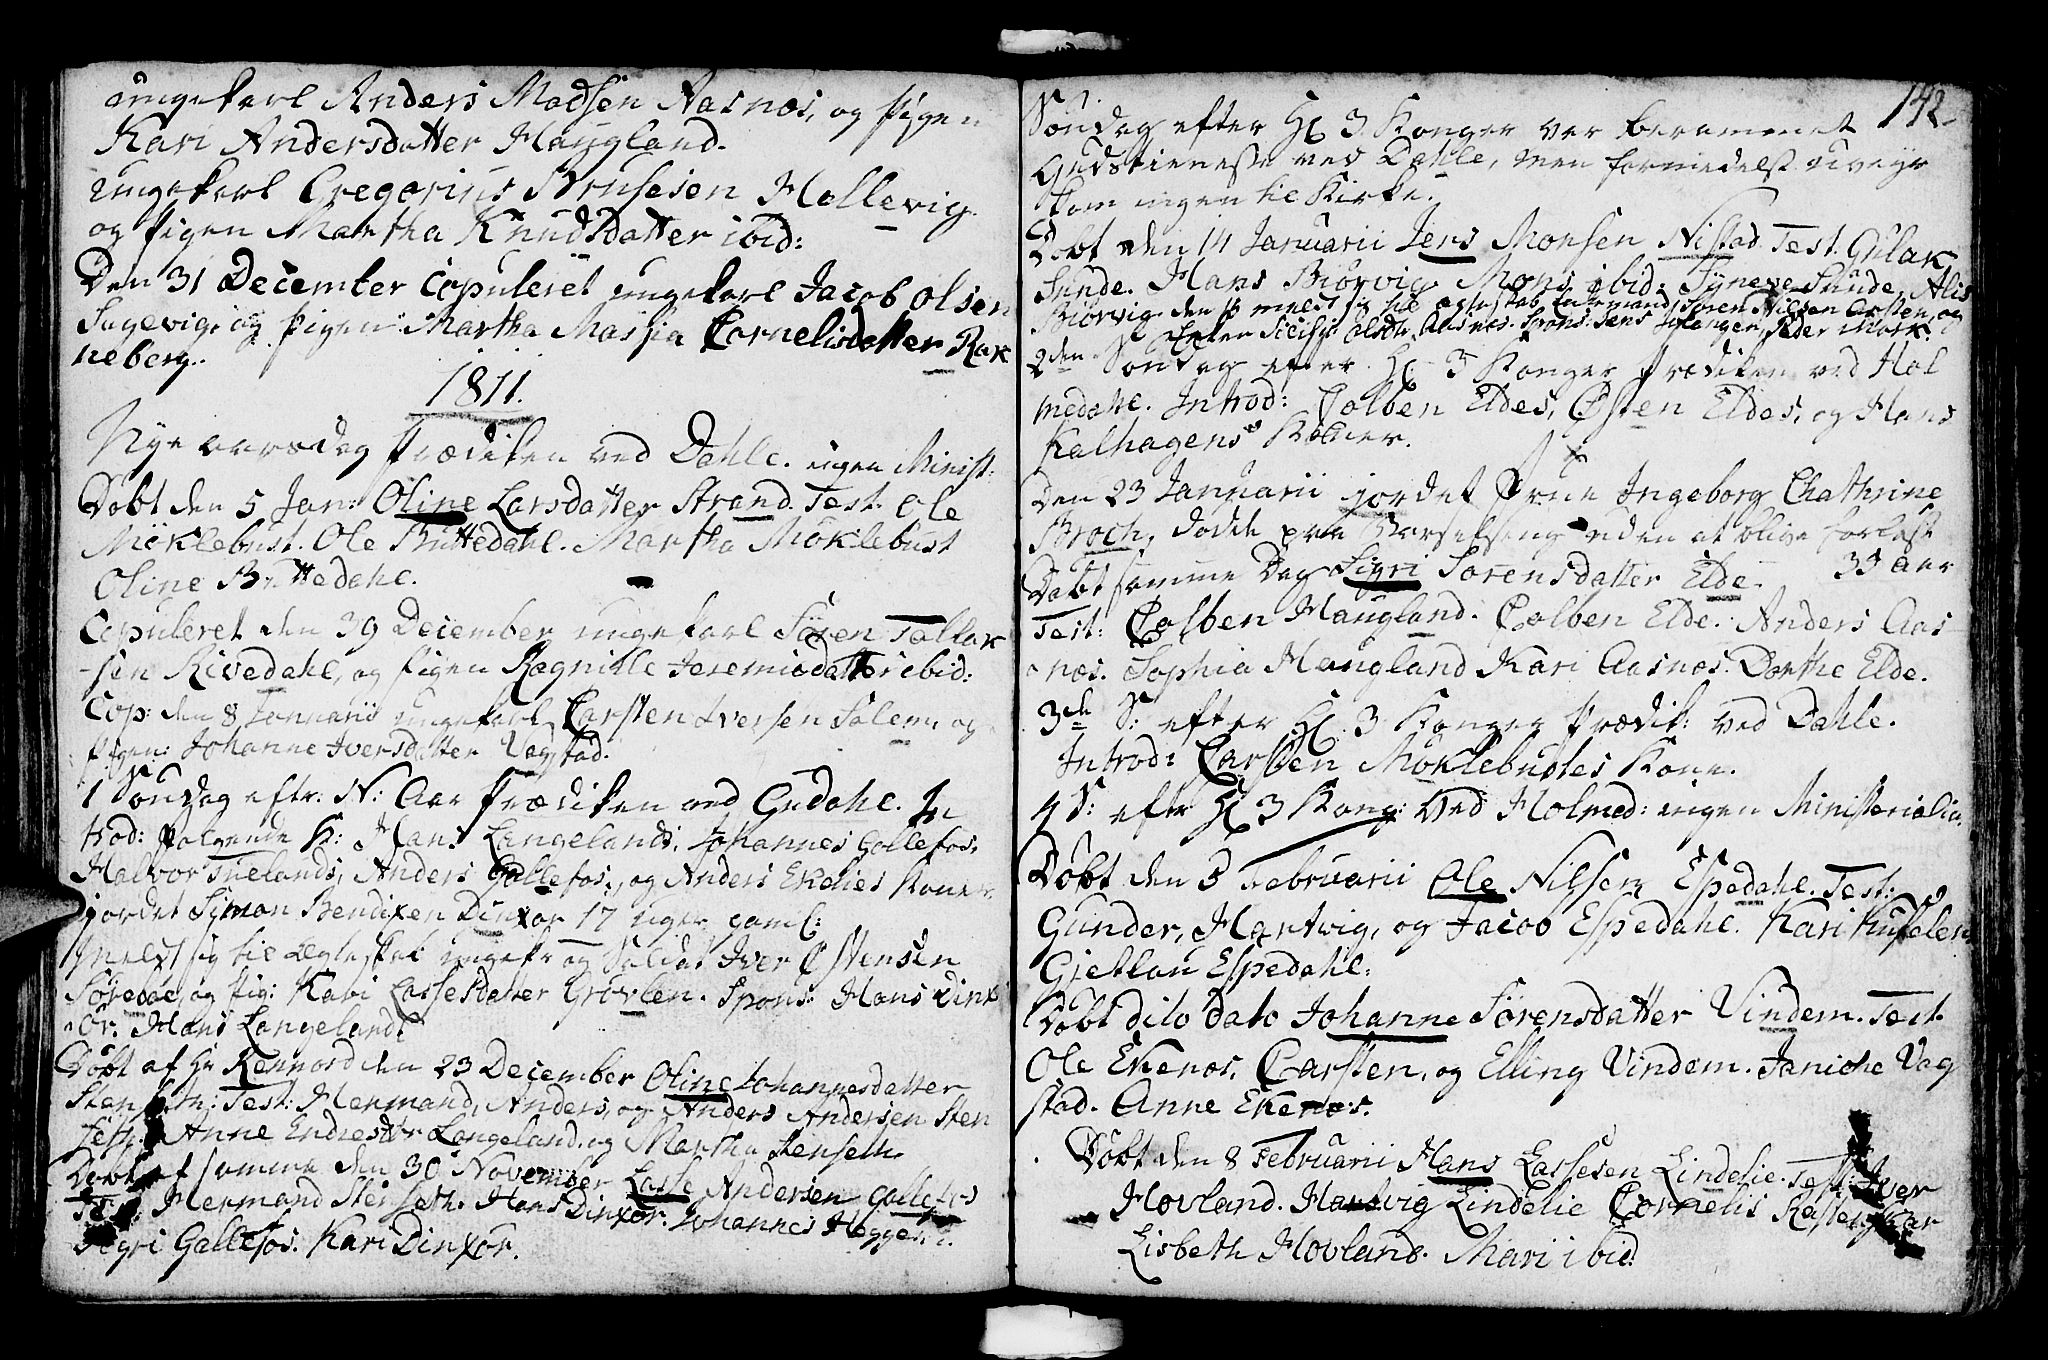 ungekarl Anders Madsen Aasnæs, og Pigen
Kari Andersdatter Haugland.
ungekarl Gregorius Knudsen Hellevig
og Pigen Martha Knudsdatter ibid:
Den 31 December Copuleret ungekarl Jacob Olsen
Sagevig, og Pigen Martha Massia Cornelisdatter Rak
neberg.
1811.
Nye aarsdag Prædiken ved Dahle. ingen Minist:
Døbt den 5 Jan: Oline Larsdatter Strand. Test. Ole
Möklebust. Ole Buttedahl. Martha Möklebust
Oline Buttedahl.
Copuleret den 30 December ungekarl Sören Tollak
sen Rivedahl, og Pigen Ragnilde Jeremiedatter ibid:
Cop: den 8 Januarii ungekarl Carsten Iversen Salem, og
Pigen: Johanne Iversdatter Vagstad.
1 Söndag eftr. N: Aar Prædiken ved Guddahl. In
trod: følgende K: Hans Langelands, Johannes Gallefos,
Halvor Tuelands, Anders Gallefos, og Anders Ekelies Koner.
jordet Symon Bendixen Dinxör 17 uger gaml:
Meldt sig til Ægteskab ungek: og Soldat Iver Østensen
og Pig: Kari Lassesdatter Grövlen. Spons: Hans Dinx
ör. Hans Langeland.
Döbt af Hr Rennord den 23 December Oline Johannesdatter
Stenseth: Test: Hermand, Anders, og Anders Andersen Sten
seth. Anne Endresdtr Langeland. og Martha Stenseth.
Döbt af samme den 30 November Lasse Andersen Gallefos
Test: Hermand Stenseth. Hans Dinxör. Johannes
Sigri Gallefos. Kari Dinxör.
142
Söndag efter Hl 3 Konger var berammet
Gudstieneste ved Dahle, men formedelst uveyr
kom ingen til Kirke.
Döbt den 14 Januarii Jens Monsen Nistad. Test. Gulak
Sunde. Hans Biörvig. Mons ibid: Synneve Sunde, Alis
Biörvig. den meldt sig til ægteskab Enkemand Sören Nilsen Aasnes, og
Pigen Olsdtr Aasnes. Spons: Jens Peder Mork.
2den Söndag efter Hl 3 Konger Prædiken ved Hol
medahl. Introd: Colben Eldes, Østen Eldes, og Hans
Kalhagens Koner.
Den 23 Januarii jordet Frue Ingeborg Chathrine
Broch, dödde paa Barselseng uden at blive forløst
33 aar
Döbt samme Dag Sigri Sorensdatter Elde.
Test: Colben Haugland. Colben Elde. Anders Aas
næs. Sophia Haugland Kari Aasnæs. Dorthe Elde.
3de S: efter Hl 3 Konger Prædik: ved Dahle.
Introd: Carsten Möklebustes Kone.
4 S: eftr Hl 3 Kong: ved Holmed: ingen Ministerialia.
Döbt den 3 Februarii Ole Nilsen Espedahl. Test:
Gunder, Hartvig, og Jacob Espedahl. Kari
Gjetlau Espedahl:
Döbt dito dato Johanne Sörensdatter Vindem. Test.
Ole Ekenæs, Carsten, og Elling Vindem. Janiche Vag
stad. Anne Ekenæs.
Döbt den 8 Februarii Hans Lassesen Lindelie. Test: Iver
Hovland. Hartvig Lindelie Cornelis
Lisbeth Hovland. Mari ibid: